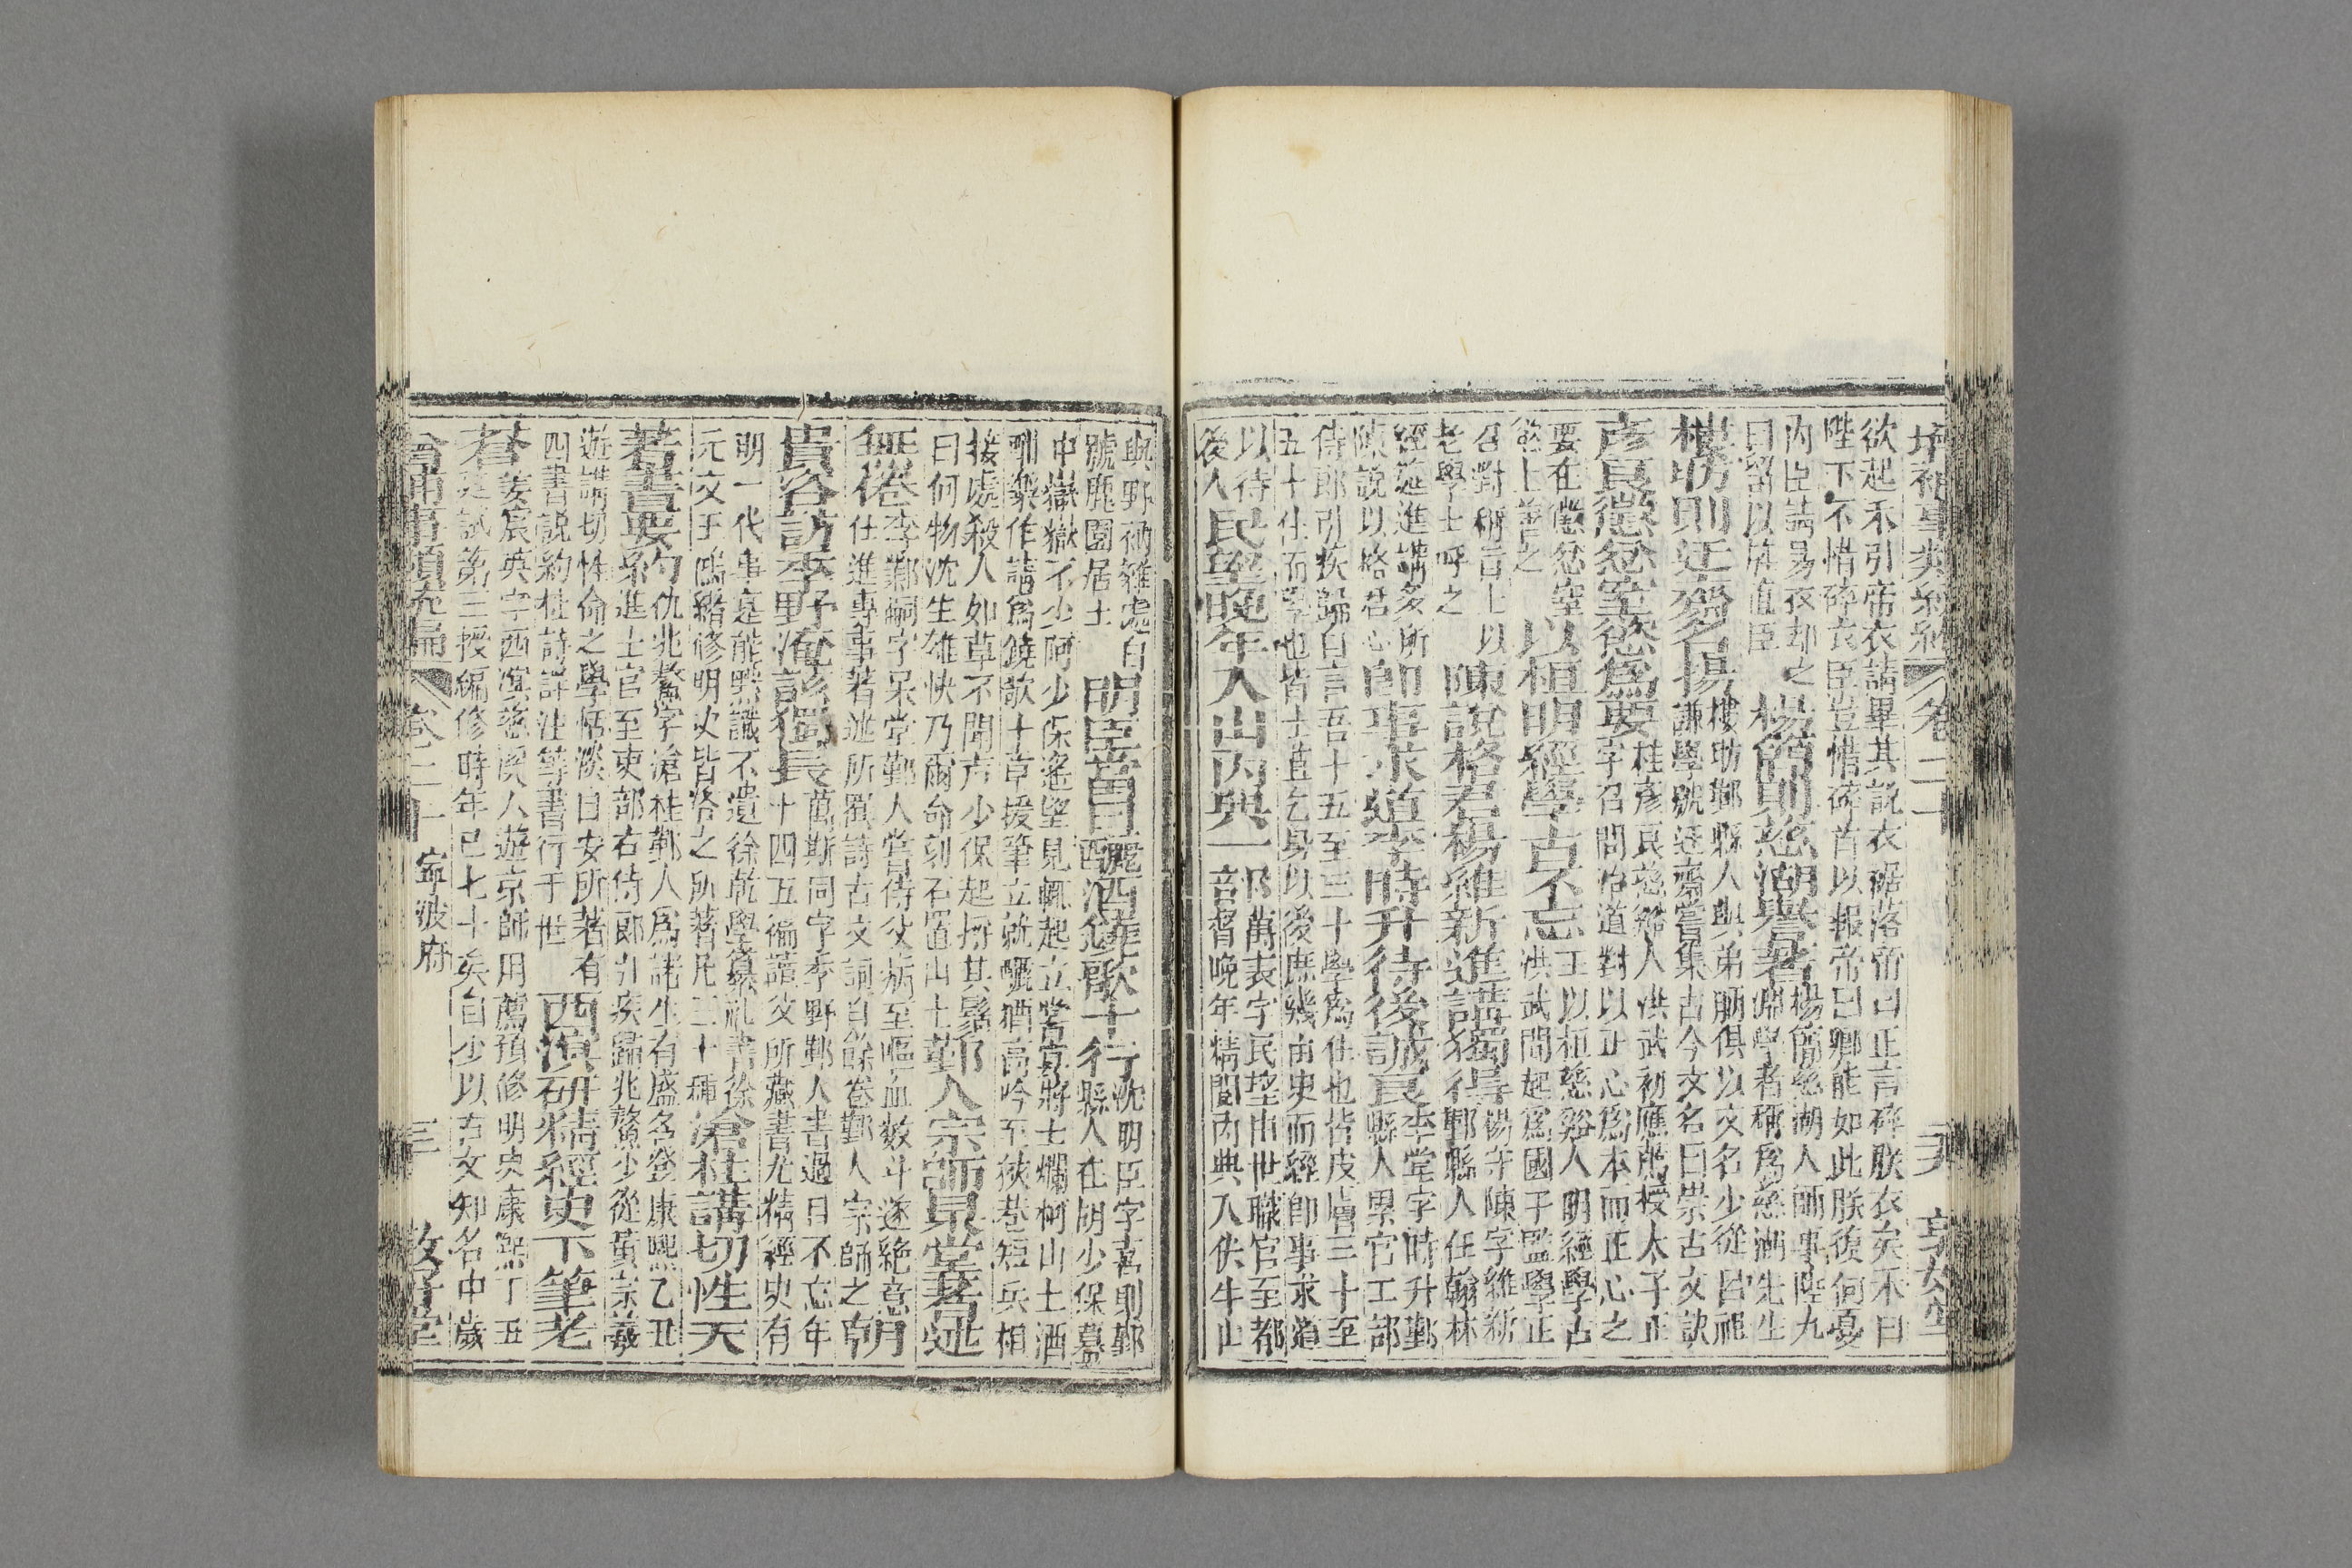 增補事類統編 卷二十
欲起禾引帝衣請畢其說衣裾落帝曰正言碎朕衣矣禾曰
陛下不惜碎衣臣豈惜碎首以報帝曰卿能如此朕復何憂
內臣請易衣却之
曰留以旌直臣
楊簡則慈湖譽著
楊簡慈湖人師事陸九
淵學者稱爲慈湖先生
樓昉則迂齋名揚
樓昉鄞縣人與弟昞俱以文名少從呂祖
謙學號迂齋嘗集古今文名曰崇古文訣
彥良懲忿窒慾爲要
桂彥良慈谿人洪武初應薦授太子正
字召問治道對以正心爲本而正心之
要在懲忿窒
慾上善之
以桓明經學古不忘
王以桓慈谿人明經學古
洪武間起爲國子監學正
召對稱旨上以
老學士呼之
陳說格君楊維新進講獨得
楊守陳字維新
鄞縣人任翰林
經筵進講多所
陳說以格君心
卽事求道李時升待後誠良
李堂字時升鄞
縣人累官工部
侍郎引疾歸自言吾十五至三十學爲仕也皆皮膚三十至
五十仕而學也皆土苴乞身以後庶幾由史而經卽事求道
以待
後人
民望晚年入出內典一部
萬表字民望由世職官至都
督晚年精閱內典入伏牛山
與野衲雜處自
號鹿園居士
明臣當日釃酒鐃歌十行
沈明臣字嘉則鄞
縣人在胡少保幕
中嶽嶽不少阿少保遙望見輒起立嘗宴將士爛柯山土酒
酣樂作請爲鐃歌十章援筆立就猶高吟至狹巷短兵相
接處殺人如草不聞声少保起捋其鬚
曰何物沈生雄快乃爾命刻石置山上
鄞人宗師杲堂著述
無倦
李鄴嗣字杲堂鄞人嘗侍父病至嘔血数斗遂絕意
仕進專事著述所選詩古文詞百餘卷鄞人宗師之
朝
貴咨訪季野淹該獨長
萬斯同字季野鄞人書過目不忘年
十四五徧讀父所藏書尤精經史有
明一代事寔能默識不遺徐乾學纂礼書徐
元文王鴻緒修明史皆咨之所著凡三十種
滄柱講切性天
著書要約
仇兆鰲字滄柱鄞人爲諸生有盛名登康熙乙丑
進士官至吏部右侍郎引疾歸兆鰲少從黃宗羲
遊講切性命之學恬淡自安所著有
四書說約杜詩詳注等書行于世
西溟研精經史下筆老
蒼
姜宸英字西溟慈溪人遊京師用薦預修明史康熙丁丑
廷試第三授編修時年已七十矣自少以古文知名中歲
卷二十 寧波府 三 敬好堂